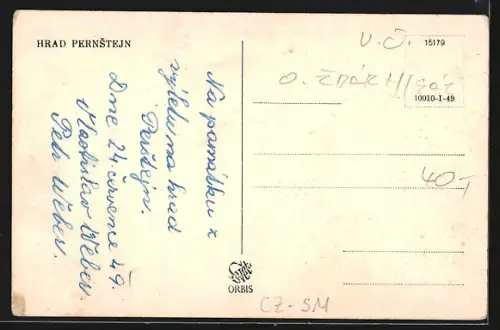 HRAD PERNŠTEJN
Na památku z
výletu na hrad
Perštejn.
Dne 24. července 49.
Vlastislav Weber
Petr Weber.
V. Č.
15179
O. ŽĎÁR
10010-I-49
40,-
ORBIS
CZ-SM